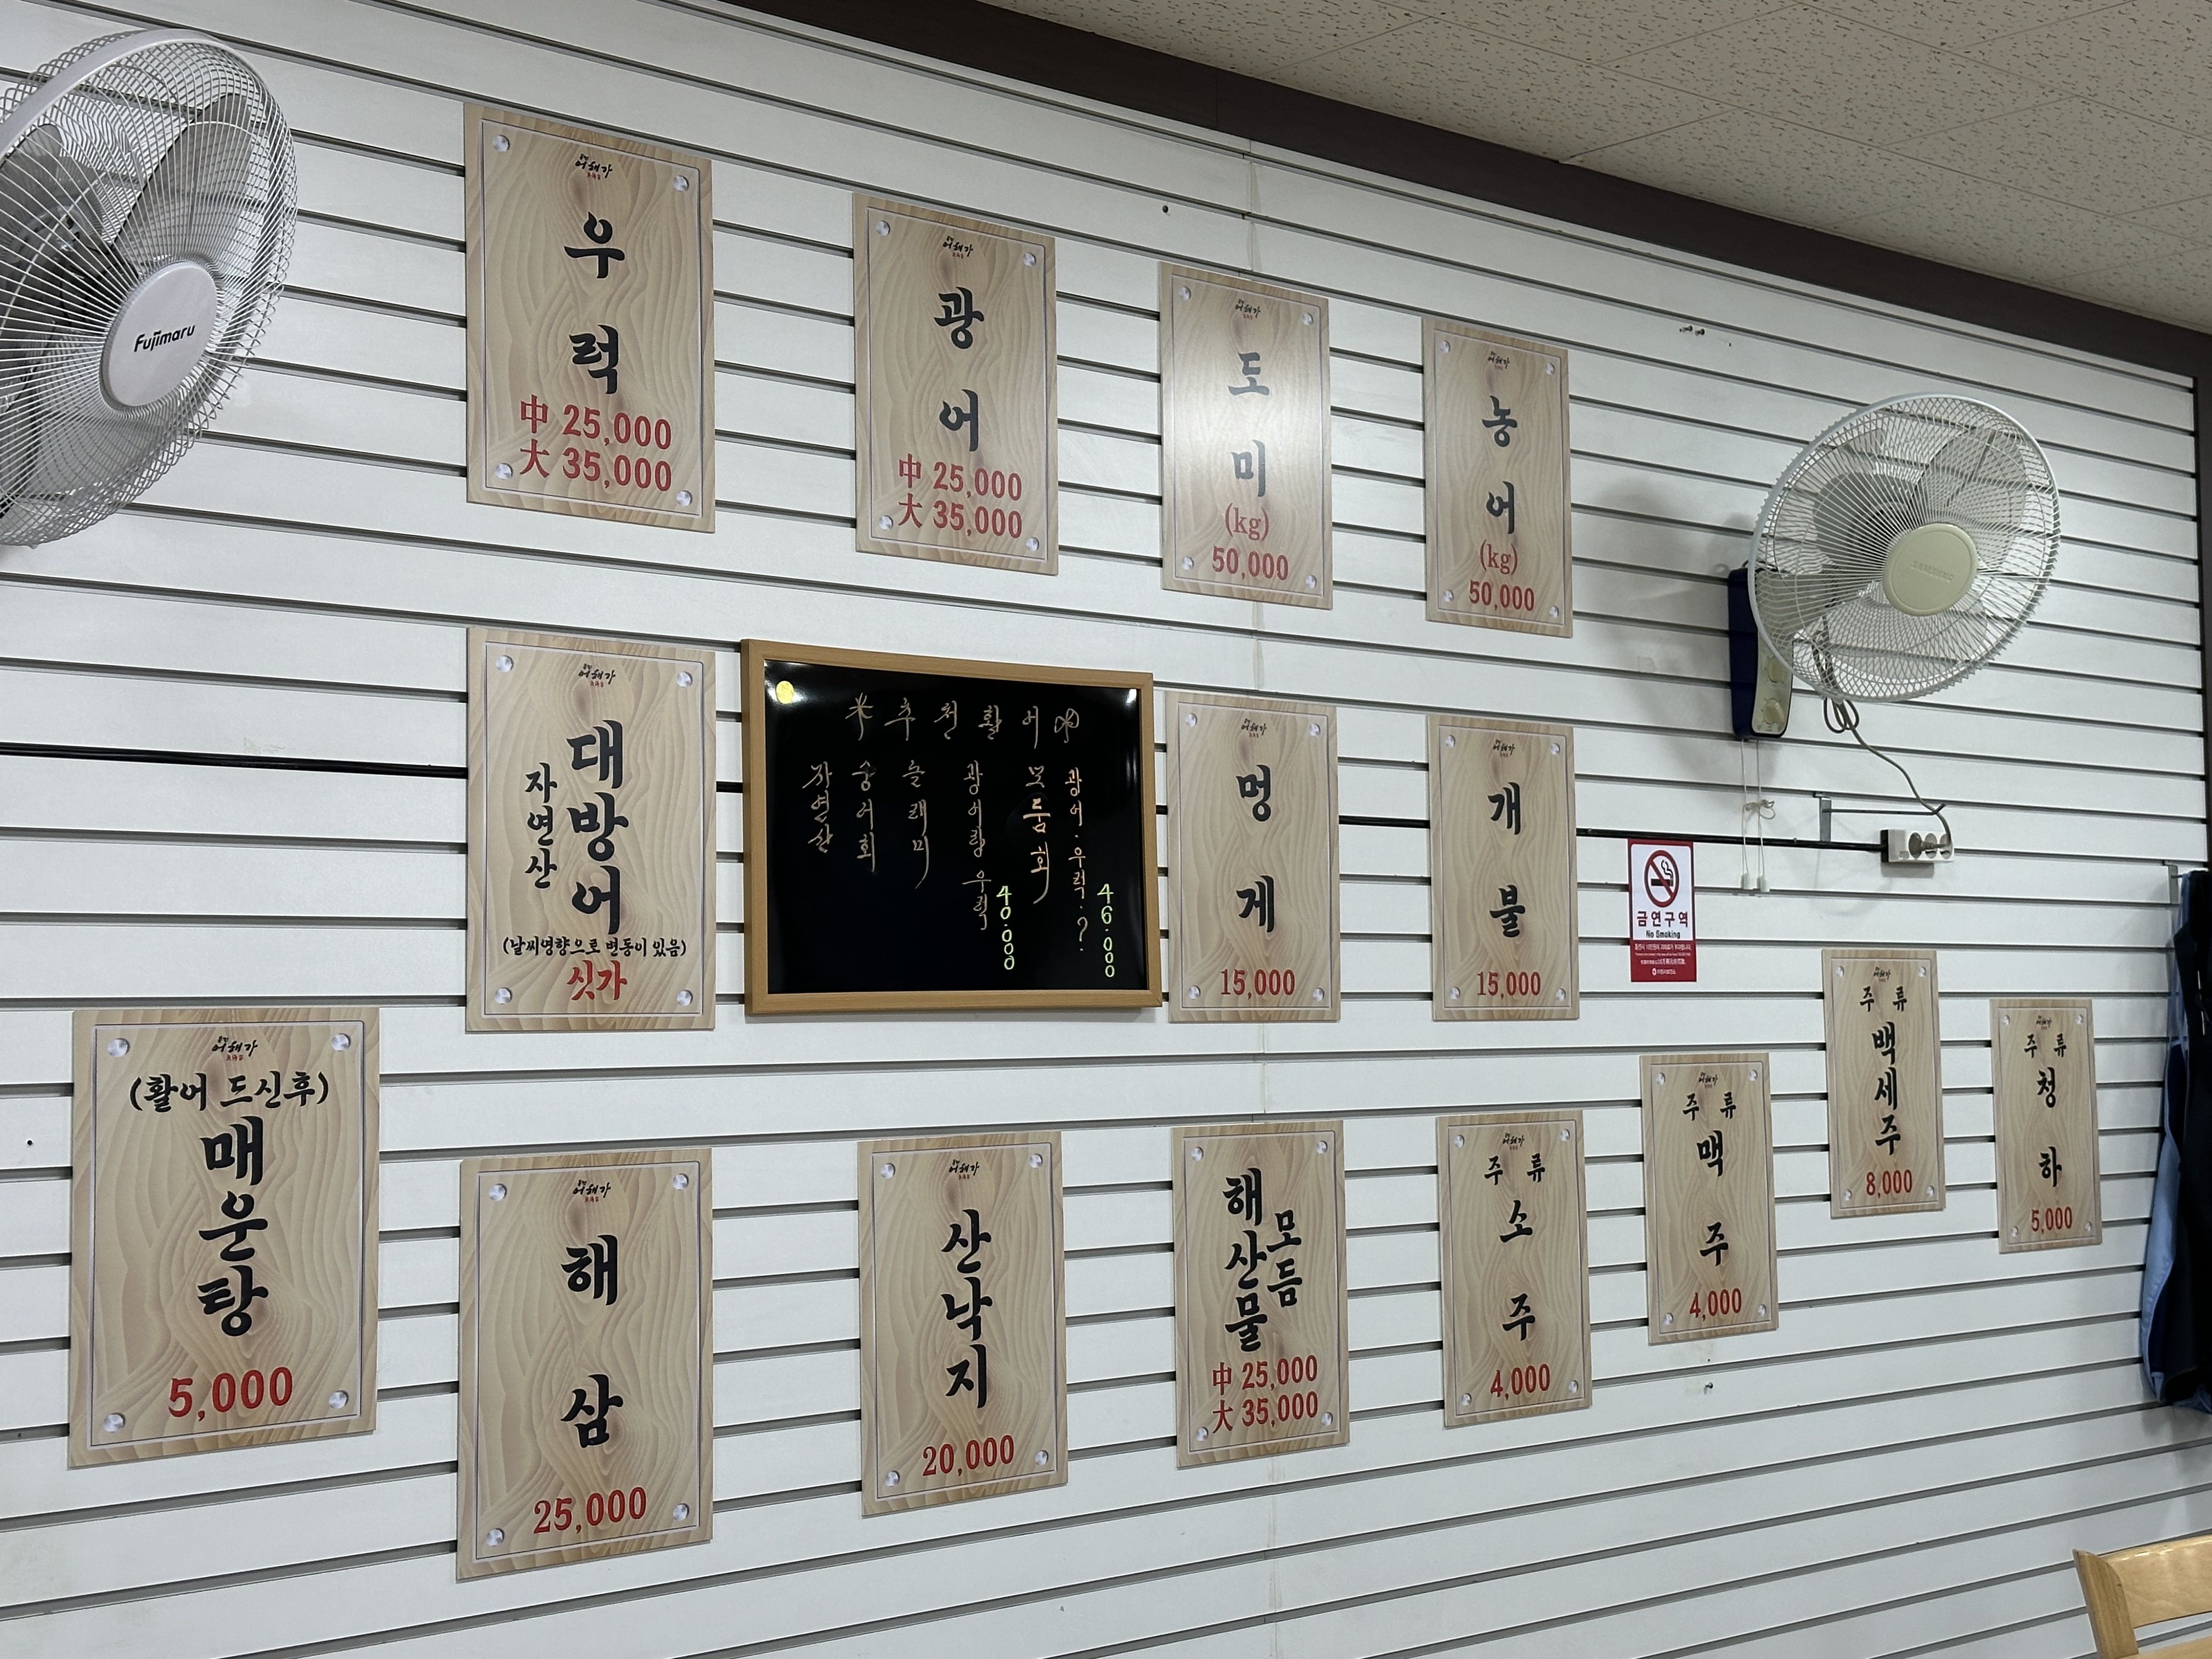 Fujimaru
어해가
우럭
中 25,000
大 35,000
어해가
광어
中 25,000
大 35,000
어해가
도미
(kg)
50,000
어해가
농어
(kg)
50,000
어해가
자연산
대방어
(날씨영향으로 변동이 있음)
싯가
추천활어
자연산
숭어회
놀래미
광어랑 우럭
40.000
모듬회
광어.우럭.?
46.000
어해가
멍게
15,000
어해가
개불
15,000
금연구역
No Smoking
SAMSUNG
어해가
(활어 드신후)
매운탕
5,000
어해가
해삼
25,000
어해가
산낙지
20,000
어해가
해산물
모듬
中 25,000
大 35,000
어해가
주류
소주
4,000
어해가
주류
맥주
4,000
어해가
주류
백세주
8,000
어해가
주류
청하
5,000